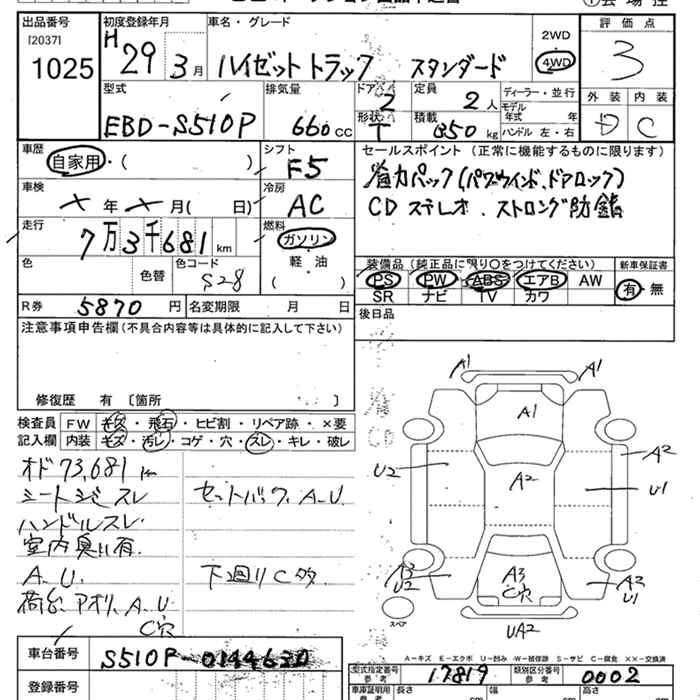 出品番号
[2037]
1025
初度登録年月
H29 3月
車名・グレード
ハイゼットトラック スタンダード
2WD
4WD
評価点
3
外装 内装
D C
型式
EBD-S510P
排気量
660cc
ドア
2
形状
T
定員
2人
積載
350kg
ディーラー・並行
モデル年式 年
ハンドル 左・右
車歴
自家用・( )
シフト
F5
セールスポイント (正常に機能するものに限ります)
省力パック(パワーウインド、ドアロック)
CDステレオ、ストロング防錆
車検
×年×月( 日)
冷房
AC
走行
7万3千681km
燃料
ガソリン
軽・油
( )
色
色替
色コード
S28
装備品 (純正品に限り○をつけてください)
PS PW ABS エアB AW
SR ナビ TV カワ
新車保証書
有・無
R券 5870円
名変期限 月 日
後日品
注意事項申告欄(不具合内容等は具体的に記入して下さい)
修復歴 有 〔箇所 〕
検査員記入欄
FW キズ・飛石・ヒビ割・リペア跡・×要
内装 キズ・汚レ・コゲ・穴・スレ・キレ・破レ
オド73,681km
シートシミスレ
ハンドルスレ
室内臭い有
A.U.
荷台.アオリ.A.U
C穴
セットバック.A.U.
下廻りC多
A1
A1
A1
A2
A2
U2
U1
A3
U2
A3
C穴
A2
U1
UA2
スペア
A-キズ E-エクボ U-凹み W-補修跡 S-サビ C-腐食 ××-交換済
車台番号
S510P-0144630
登録番号
型式指定番号
参考
17819
類別区分番号
参考
0002
車庫証明用
参考
長さ cm
幅 cm
高さ cm